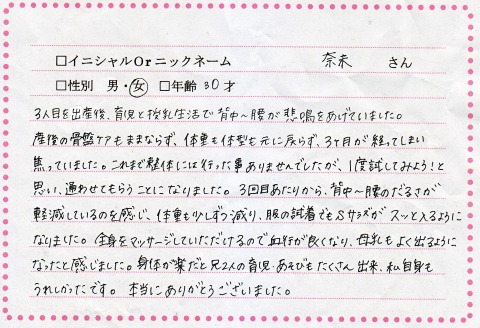 □イニシャルOrニックネーム 奈未 さん
□性別 男・女 □年齢 30才
3人目を出産後、育児と授乳生活で背中〜腰が悲鳴をあげていました。
産後の骨盤ケアもままならず、体重も体型も元に戻らず、3ヶ月が経ってしまい
焦っていました。これまで整体には行った事ありませんでしたが、1度試してみよう!と
思い、通わせてもらうことになりました。3回目あたりから、背中〜腰のだるさが
軽減しているのを感じ、体重も少しずつ減り、服の試着でもSサイズがスッと入るように
なりました。全身をマッサージしていただけるので血行が良くなり、母乳もよく出るように
なったと感じました。身体が楽だと兄2人の育児・あそびもたくさん出来、私自身も
うれしかったです。本当にありがとうございました。